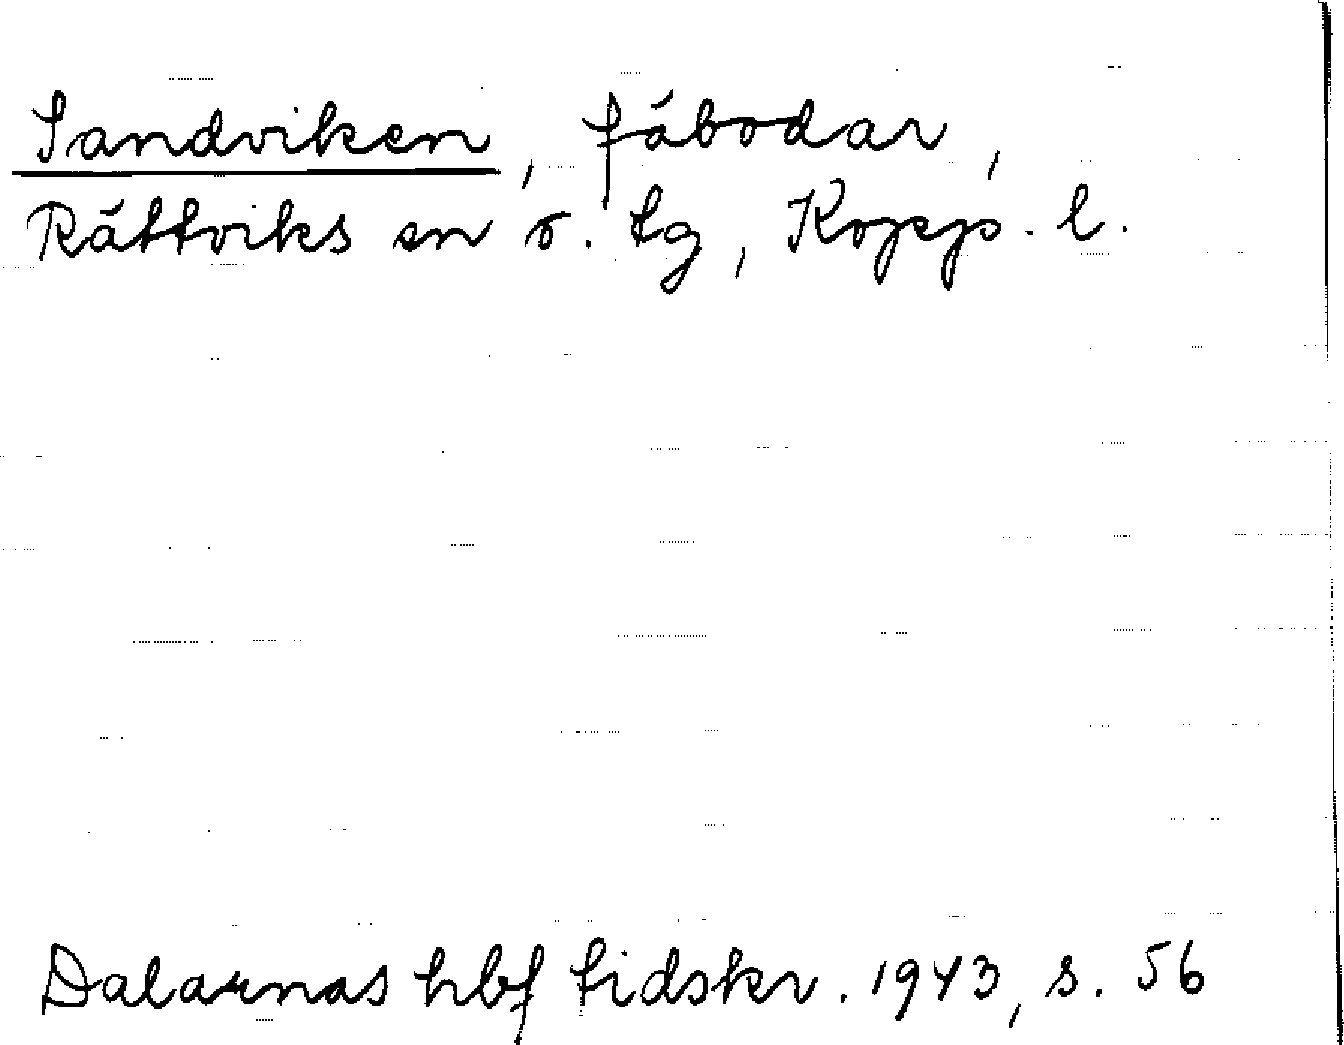 Sandviken, fäbodar,
Rättviks sn o. tg, Kopp. l.
Dalarnas hbf tidskr. 1943, s. 56